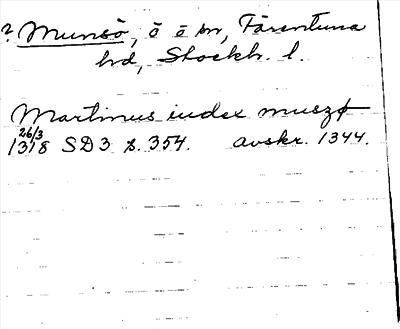 ? Munsö, ö o sn, Färentuna
hd, Stockh. l.
Martinus iudex muszø
26/3
1318 SD 3 s. 354. avskr. 1344.